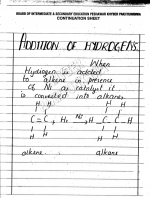 BOARD OF INTERMEDIATE & SECONDARY EDUCATION PESHAWAR KHYBER PAKHTUNKHWA
CONTINUATION SHEET
ADDITION OF HYDROGENS.
When
Hydrogen is added
to alkene in presence
of Ni as catalyst it
is converted into alkanes
H H H H
C = C + H₂ Ni→ H - C - C - H
H H H H
alkene alkane.